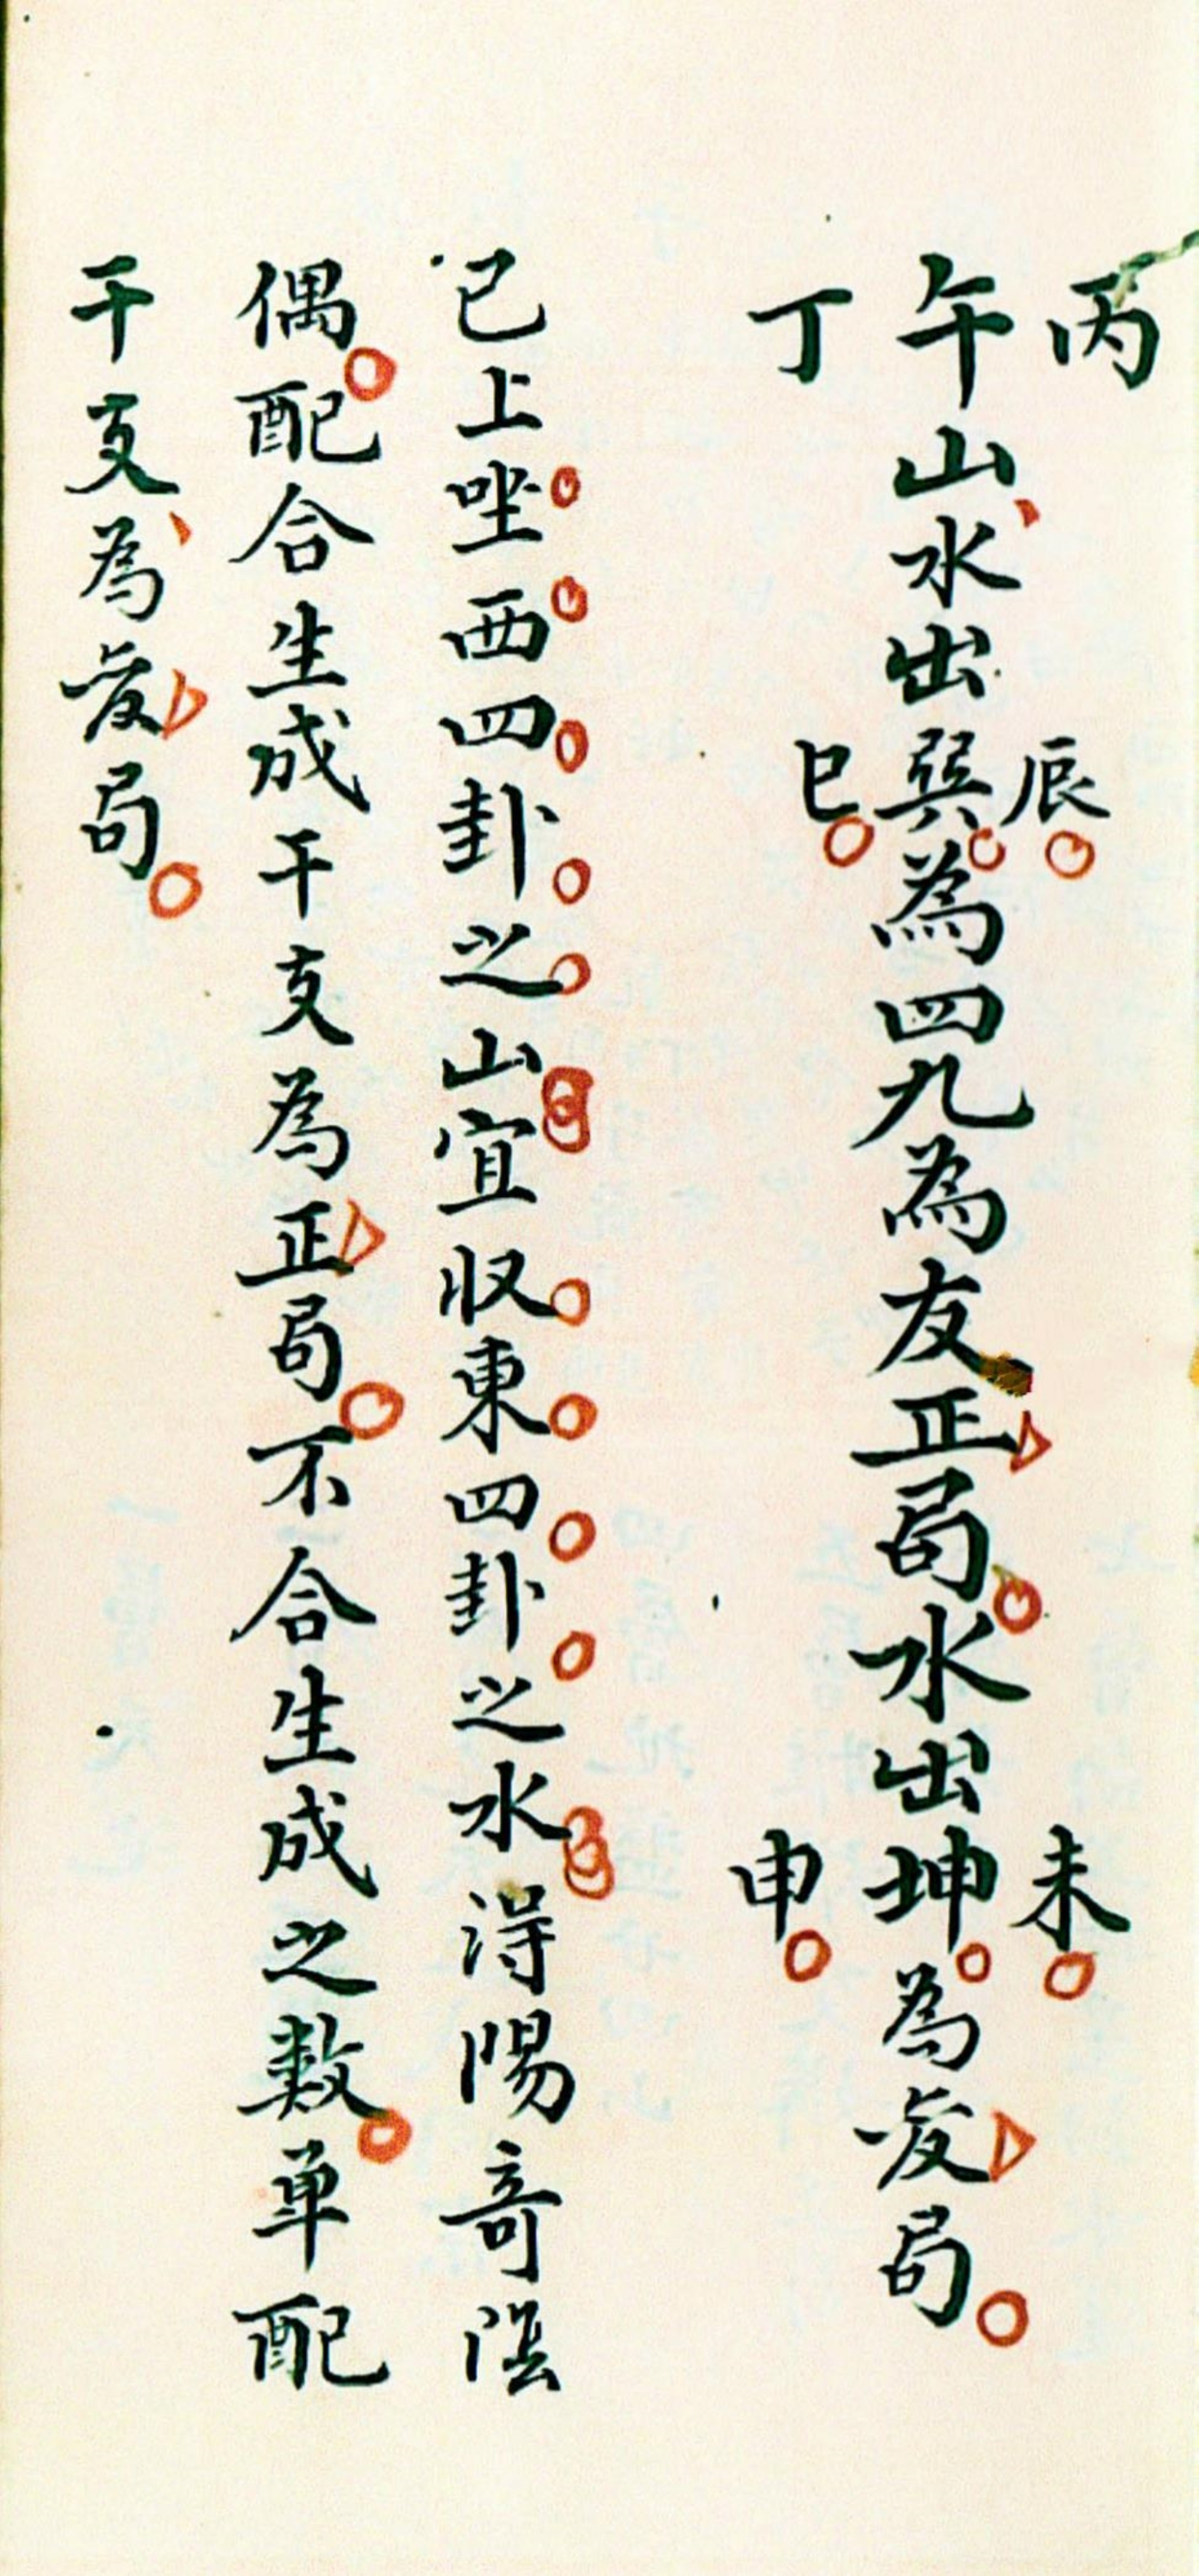 丙午丁山水出辰巽巳為四九為友正局水出未坤申為变局
已上坐西四卦之山宜收東四卦之水淂陽竒陰
偶配合生成干支為正局不合生成之数单配
干支為变局